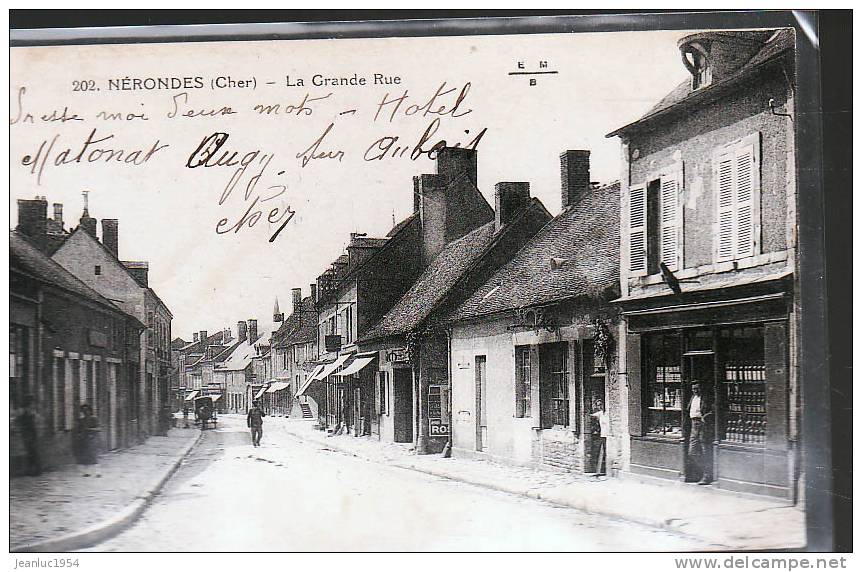 202. NÉRONDES (Cher) — La Grande Rue
E M
B
Dresse moi deux mots - Hotel
Matonat Augy sur Aubois
Cher
RO
jeanluc1954
www.delcampe.net